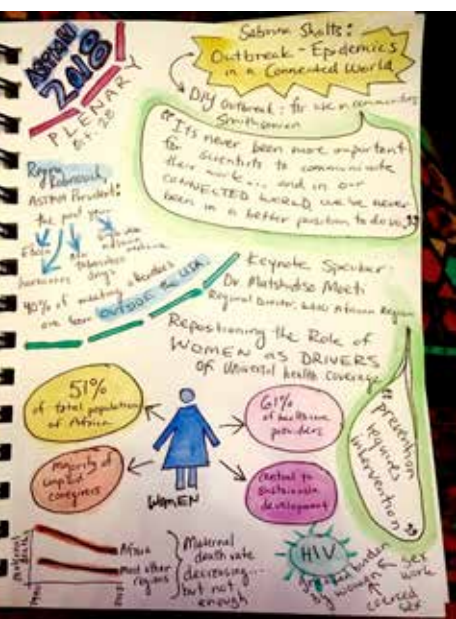 ASTMH
2018
PLENARY
Oct. 28
Sabrina Sholts:
Outbreak - Epidemics
in a Connected World
DIY Outbreak: for use in communities
Smithsonian
"It's never been more important
for scientists to communicate
their work... and in our
CONNECTED WORLD, we've never
been in a better position to do so."
Regina
Rabinovich,
ASTMH President:
the past year
Ebola
drugs
40% of meeting attendees
are from OUTSIDE the USA
Keynote Speaker:
Dr Matshidiso Moeti
Regional Director, WHO African Region
Repositioning the Role of
WOMEN as DRIVERS
of Universal health coverage
51%
of total population
of Africa
61%
of healthcare
providers
majority of
unpaid
caregivers
WOMEN
central to
sustainable
development
"prevention
requires
intervention"
Africa
Most other
regions
Maternal
death rate
decreasing...
but not
enough
HIV
burden
women
sex
work
coerced
sex